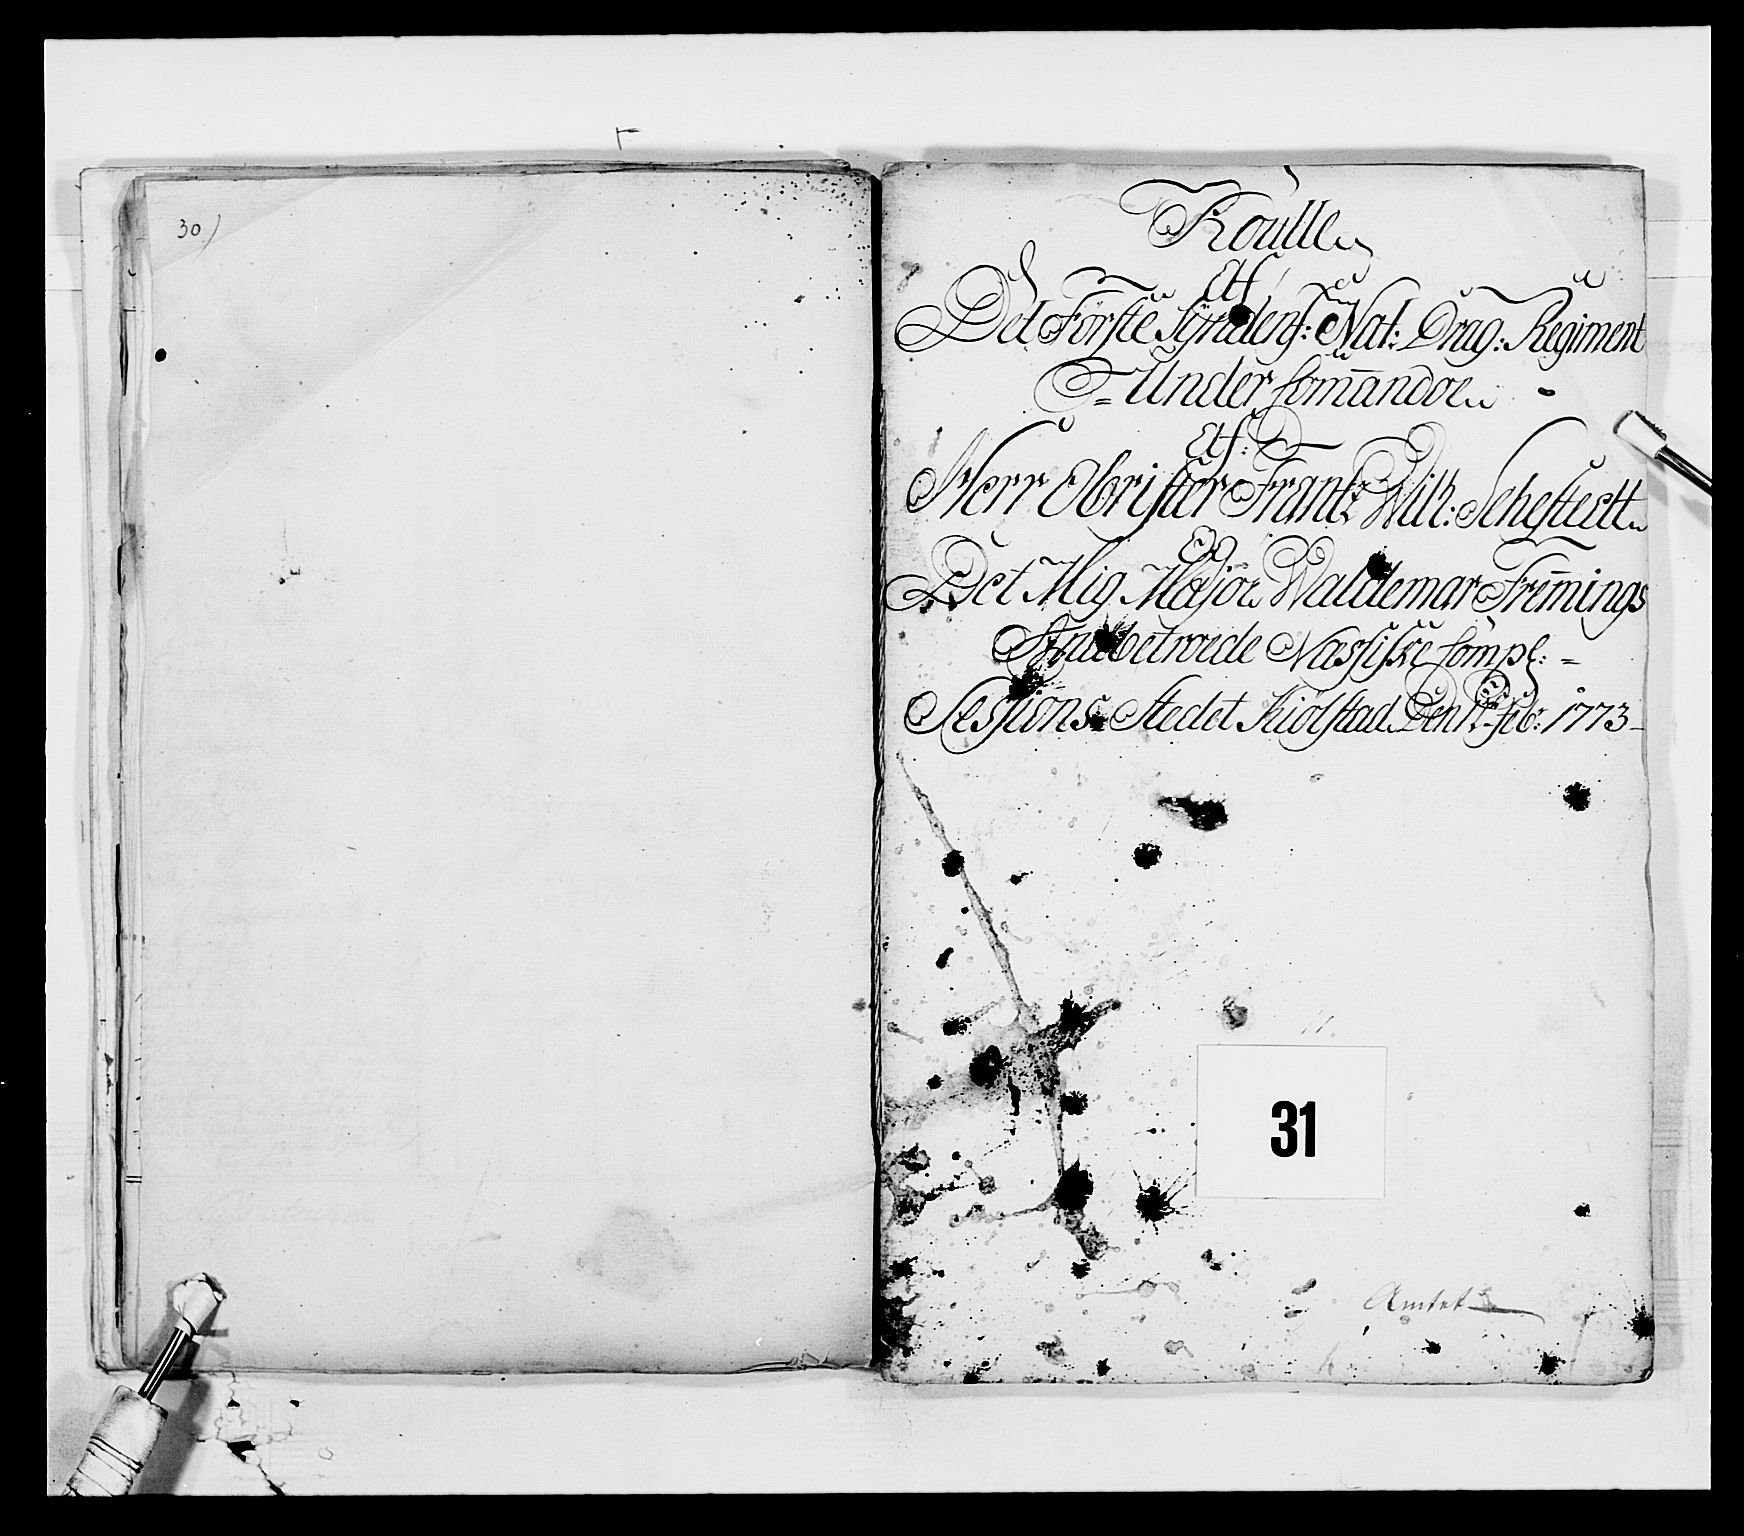 30)
Roulle
Af
Det Förste Syndenf: Nat: Drag: Regiment
Under Comandoe
Af
Herr Obrister Frantz Wilh: Sehestedt
Og
Det Mig Major Waldemar Fremings
Anbetroede Nassiske Comp:
Sessions Stedet Kiölstad Den Feb: 1773
31
Amtet